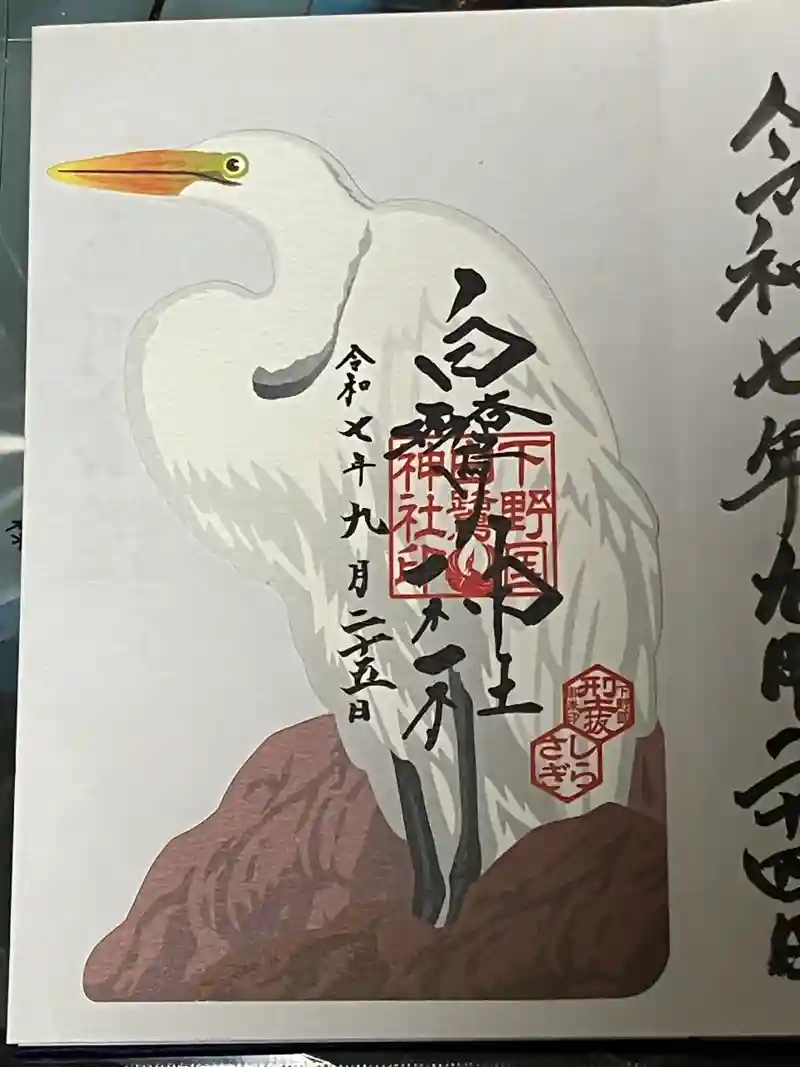 令和七年九月二十四日
白鷺神社
下野国
白鷺
神社印
令和七年九月二十五日
しら
さぎ